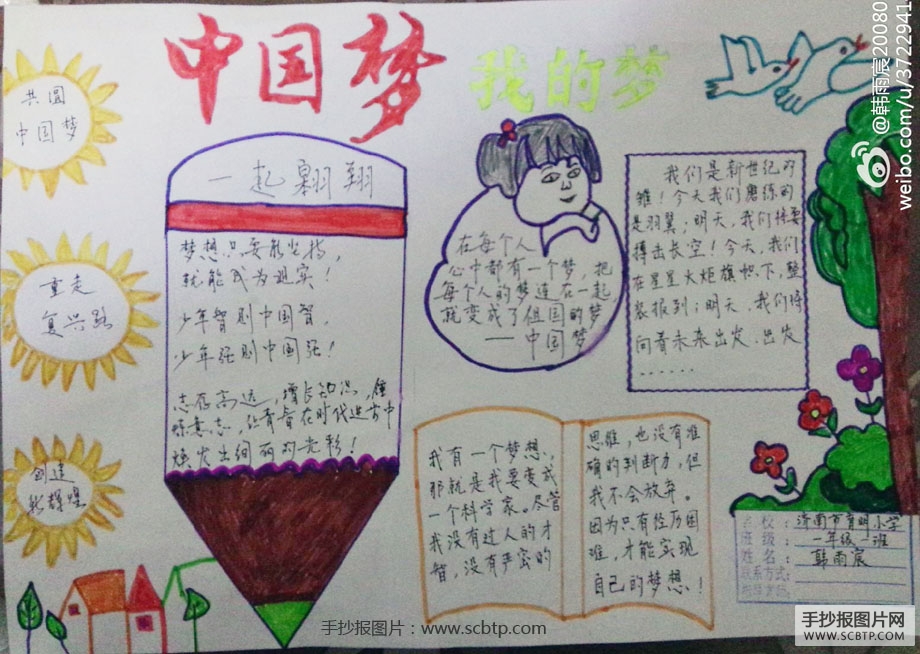 中国梦
我的梦
共圆
中国梦
重走
复兴路
创造
新辉煌
一起翱翔
梦想只要能坚持，
就能成为现实！
少年智则中国智，
少年强则中国强！
志存高远，增长知识，锤
炼意志，让青春在时代进步中
焕发出绚丽的光彩！
在每个人
心中都有一个梦，把
每个人的梦连在一起
就变成了祖国的梦
——中国梦
我们是新世纪的
雏！今天我们磨练的
是羽翼；明天，我们将要
搏击长空！今天，我们
在星星火炬旗帜下，整
装报到；明天，我们将
向着未来出发，出发
......
我有一个梦想，
那就是我要变成
一个科学家。尽管
我没有过人的才
智，没有严密的
思维，也没有准
确的判断力，但
我不会放弃。
因为只有经历困
难，才能实现
自己的梦想！
学校：济南市育明小学
班级：一年级一班
姓名：韩雨宸
联系方式：
指导教师：
@韩雨宸20080
weibo.com/u/3722941
手抄报图片：www.scbtp.com
手抄报图片网
WWW.SCBTP.COM